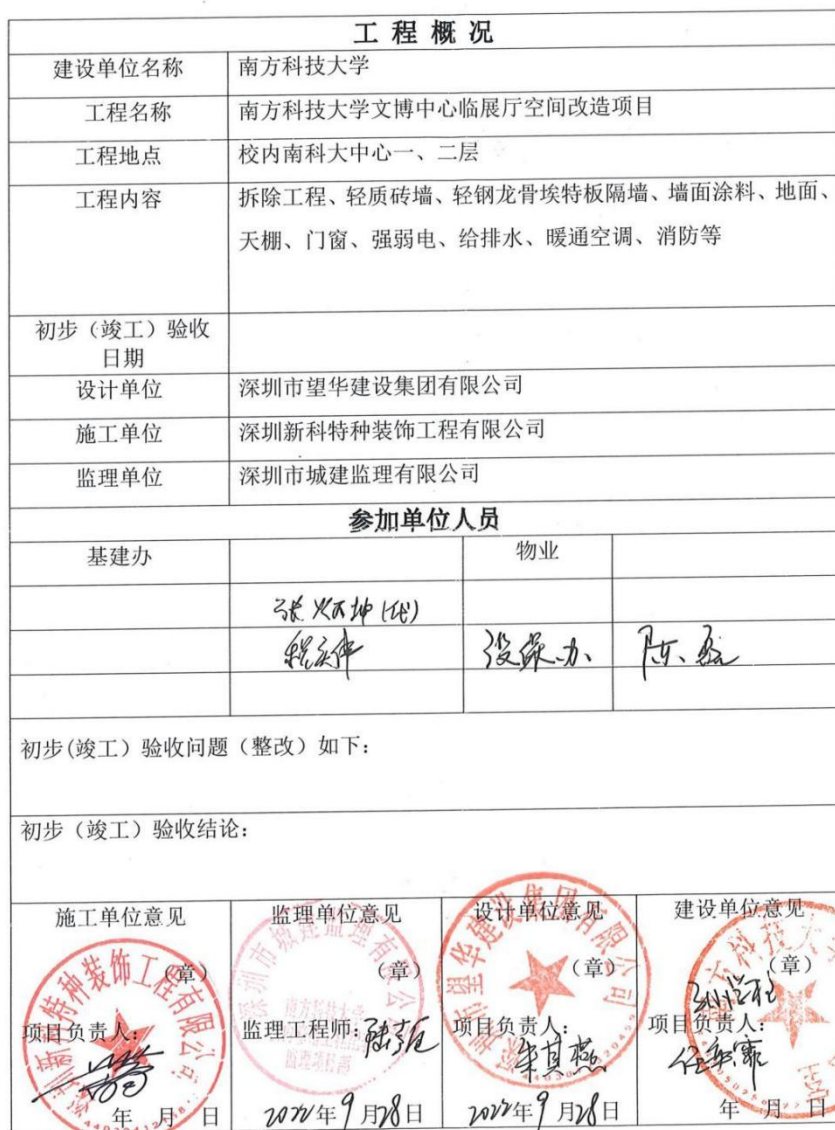 工程概况
建设单位名称 南方科技大学
工程名称 南方科技大学文博中心临展厅空间改造项目
工程地点 校内南科大中心一、二层
工程内容 拆除工程、轻质砖墙、轻钢龙骨埃特板隔墙、墙面涂料、地面、
天棚、门窗、强弱电、给排水、暖通空调、消防等
初步（竣工）验收
日期
设计单位 深圳市望华建设集团有限公司
施工单位 深圳新科特种装饰工程有限公司
监理单位 深圳市城建监理有限公司
参加单位人员
基建办 物业
初步(竣工）验收问题（整改）如下：
初步（竣工）验收结论：
施工单位意见 监理单位意见 设计单位意见 建设单位意见
（章） （章） （章） （章）
项目负责人： 监理工程师： 项目负责人： 项目负责人：
朱其燕
年 月 日 2022年9月28日 2022年9月28日 年 月 日